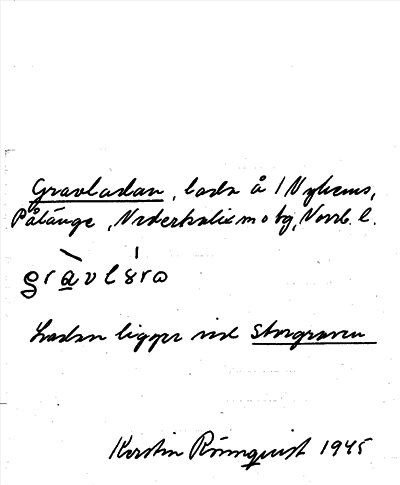 Gravladan, lada å 1 Nyhems,
Pålänge, Nederkalix m o tg, Norrb. l.
gravlšra
Ladan ligger vid storgraven
Kerstin Rönnquist 1945